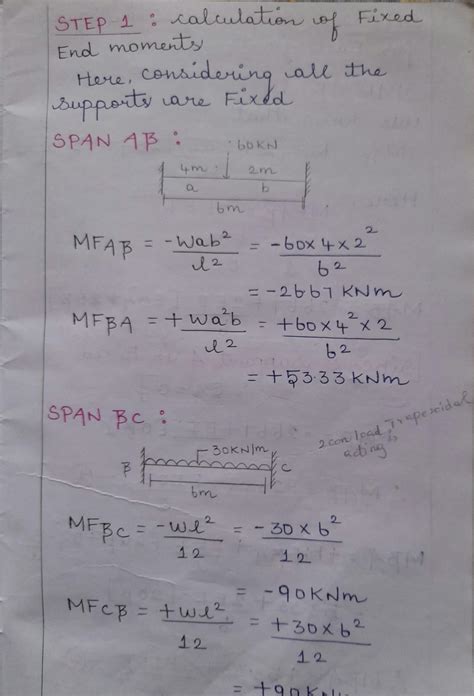 STEP 1 : calculation of Fixed
End moments
Here, considering all the
supports are Fixed
SPAN AB :
60KN
4m 2m
a b
6m
MFAB = -Wab² / l² = -60 × 4 × 2² / 6²
= -26.67 KNm
MFBA = +Wa²b / l² = +60 × 4² × 2 / 6²
= +53.33 KNm
SPAN BC :
2 con load, Trapezoidal
acting
30KN/m
B C
6m
MFBC = -wl² / 12 = -30 × 6² / 12
= -90KNm
MFCB = +wl² / 12 = +30 × 6² / 12
= +90KNm